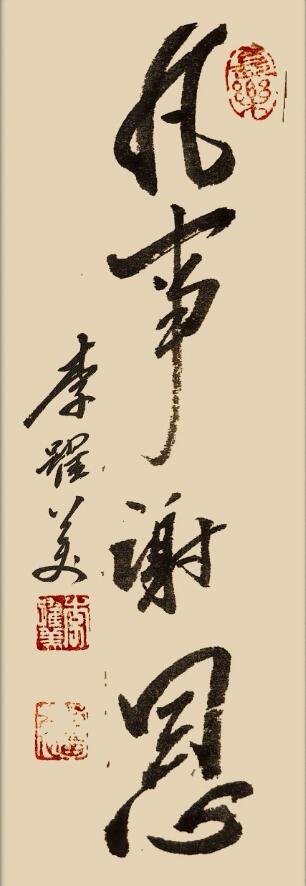 凡事謝恩
李躍美